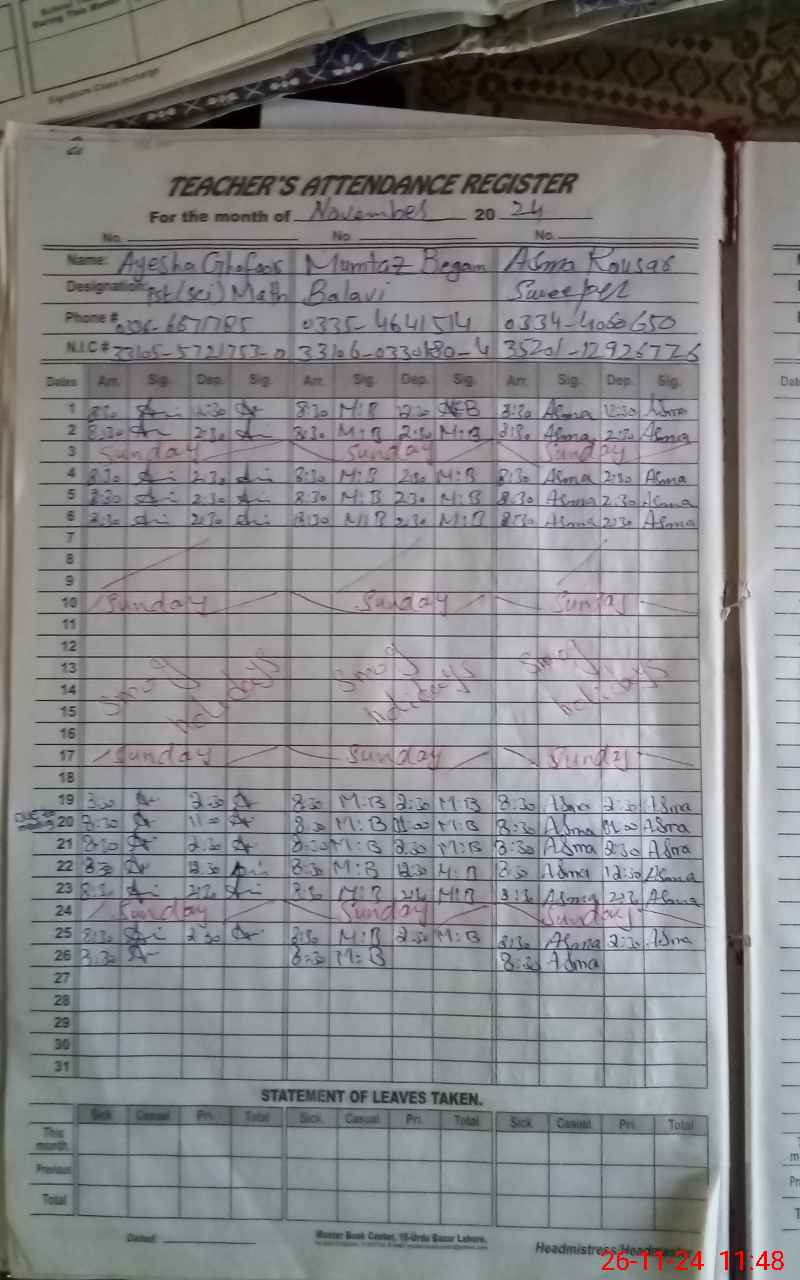 During This Month
Signature Class Incharge
TEACHER'S ATTENDANCE REGISTER
For the month of November 2024
No. No. No.
Name: Ayesha Ghafoor Mumtaz Begam Asma Kousar
Designation: Pst (sci) Math Balavi Sweeper
Phone # 0335-4641514 0334-4060650
N.I.C #
Dates Arr. Sig. Dep. Sig. Arr. Sig. Dep. Sig. Arr. Sig. Dep. Sig.
1 8:30 12:30 8:30 M:B 12:30 8:30 Asma 12:30 Asma
2 8:30 2:30 8:30 M:B 2:30 M:B 8:30 Asma 2:30 Asma
3 Sunday Sunday Sunday
4 8:30 2:30 8:30 M:B 2:30 M:B 8:30 Asma 2:30 Asma
5 8:30 2:30 8:30 M:B 2:30 M:B 8:30 Asma 2:30 Asma
6 8:30 2:30 8:30 M:B 2:30 M:B 8:30 Asma 2:30 Asma
7
8
9
10 Sunday Sunday Sunday
11
12
13 smog smog smog
14 holidays holidays holidays
15
16
17 Sunday Sunday Sunday
18
19 8:30 2:30 8:30 M:B 2:30 M:B 8:30 Asma 2:30 Asma
20 8:30 11:00 8:30 M:B 01:00 M:B 8:30 Asma 01:00 Asma
21 8:30 2:30 8:30 M:B 2:30 M:B 8:30 Asma 2:30 Asma
22 8:30 12:30 8:30 M:B 12:30 M:B 8:30 Asma 12:30 Asma
23 8:30 2:30 8:30 M:B M:B 8:30 Asma 2:30 Asma
24 Sunday Sunday Sunday
25 8:30 2:30 8:30 M:B 2:30 M:B 8:30 Asma 2:30 Asma
26 8:30 8:30 M:B 8:30 Asma
27
28
29
30
31
STATEMENT OF LEAVES TAKEN.
Sick Casual Pri. Total Sick Casual Pri. Total Sick Casual Pri. Total
This month
Previous
Total
Dated: Master Book Center, 16-Urdu Bazar Lahore.
Headmistress/
26-11-24 11:48